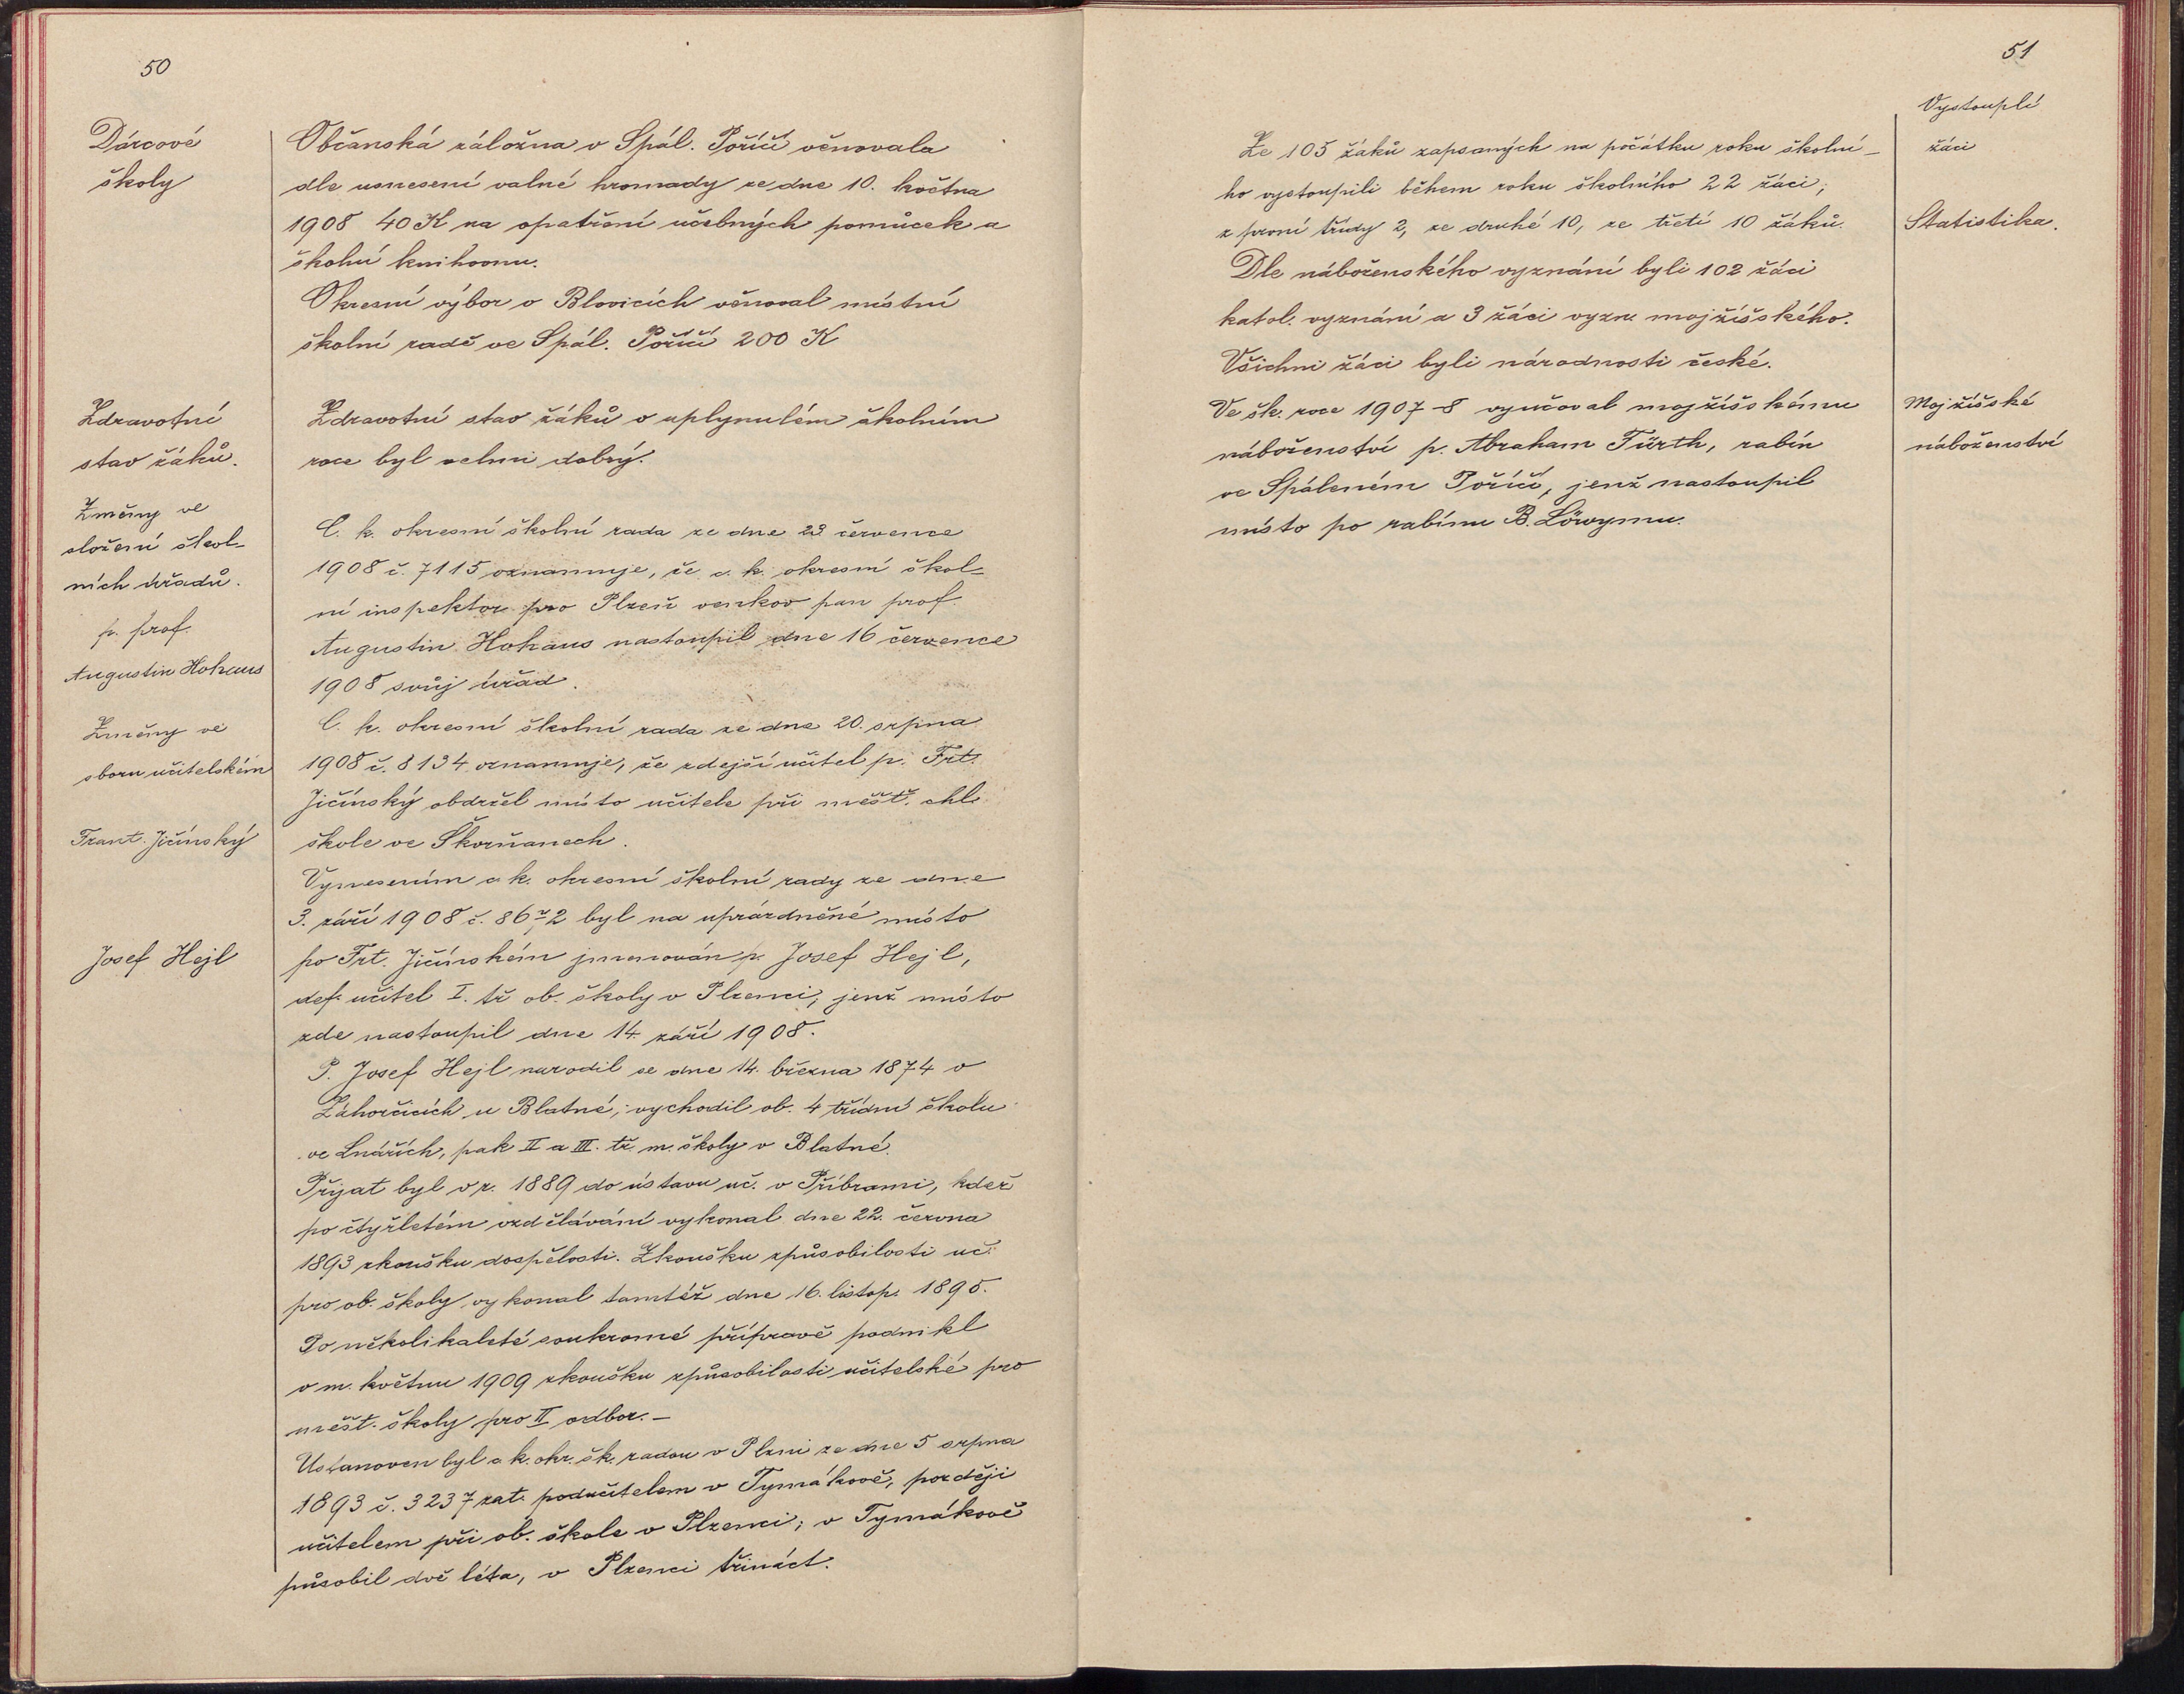 50
Dárcové
školy
Občanská záložna v Spál. Poříčí věnovala
dle usnesení valné hromady ze dne 10. května
1908 40 K na opatření učebných pomůcek a
školní knihovnu.
Okresní výbor v Blovicích věnoval místní
školní radě ve Spál. Poříčí 200 K
Zdravotní
stav žáků.
Zdravotní stav žáků v uplynulém školním
roce byl velmi dobrý.
Změny ve
složení škol-
ních úřadů.
p. prof.
Augustin Hohaus
C. k. okresní školní rada ze dne 23 července
1908 č. 7115 oznamuje, že c. k. okresní škol-
ní inspektor pro Plzeň venkov pan prof.
Augustin Hohaus nastoupil dne 16 července
1908 svůj úřad.
Změny ve
sboru učitelském
Frant. Jičínský
C. k. okresní školní rada ze dne 20. srpna
1908 č. 8134 oznamuje, že zdejší učitel p. Frt.
Jičínský obdržel místo učitele při měšť. chl.
škole ve Škorňanech.
Vynesením c. k. okresní školní rady ze dne
3. září 1908 č. 8672 byl na uprázdněné místo
Josef Hejl
po Frt. Jičínském jmenován p. Josef Hejl,
def. učitel I. tř ob. školy v Plzenci, jenž místo
zde nastoupil dne 14. září 1908.
P. Josef Hejl narodil se dne 14. března 1874 v
Záhorčicích u Blatné; vychodil ob. 4 třídní školu
ve Lnářích, pak II a III. tř. m. školy v Blatné.
Přijat byl v r. 1889 do ústavu uč. v Příbrami, kdež
po čtyřletém vzdělávání vykonal dne 22. června
1893 zkoušku dospělosti. Zkoušku způsobilosti uč.
pro ob. školy vykonal tamtéž dne 16. listop. 1895.
Po několikaleté soukromé přípravě podnikl
v m. květnu 1909 zkoušku způsobilosti učitelské pro
měšt. školy pro II odbor. -
Ustanoven byl c. k. okr. šk. radou v Plzni ze dne 5 srpna
1893 č. 3237 zat. podučitelem v Tymákově, později
učitelem při ob. škole v Plzenci; v Tymákově
působil dvě léta, v Plzenci třináct.
51
Vystouplí
žáci
Ze 105 žáků zapsaných na počátku roku školní-
ho vystoupili během roku školního 22 žáci;
z první třídy 2, ze druhé 10, ze třetí 10 žáků.
Statistika.
Dle náboženského vyznání byli 102 žáci
katol. vyznání a 3 žáci vyzn. mojžíšského.
Všichni žáci byli národnosti české.
Mojžíšské
náboženství
Ve šk. roce 1907-8 vyučoval mojžíšskému
náboženství p. Abraham Fürth, rabín
ve Spáleném Poříčí, jenž nastoupil
místo po rabínu B. Löwymu.